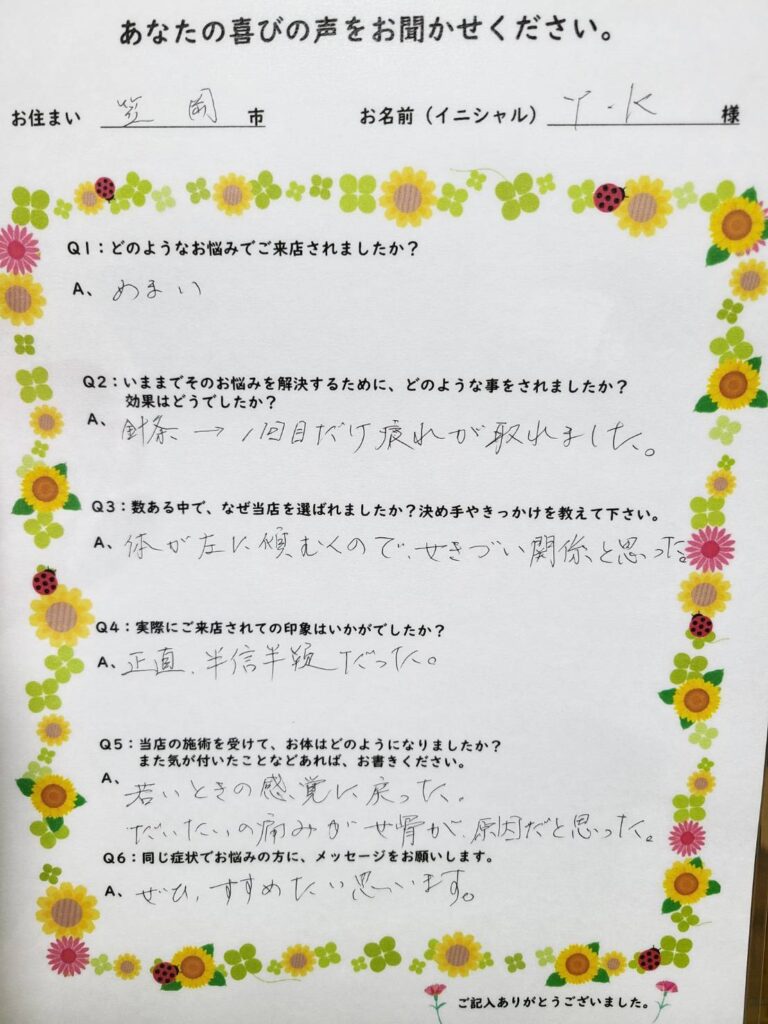 あなたの喜びの声をお聞かせください。
お住まい 笠岡 市 お名前（イニシャル） Y・K 様
Q1：どのようなお悩みでご来店されましたか？
A、めまい
Q2：いままでそのお悩みを解決するために、どのような事をされましたか？
効果はどうでしたか？
A、針灸 → 1回目だけ疲れが取れました。
Q3：数ある中で、なぜ当店を選ばれましたか？決め手やきっかけを教えて下さい。
A、体が左に傾むくので、せきづい関係と思った。
Q4：実際にご来店されての印象はいかがでしたか？
A、正直、半信半疑だった。
Q5：当店の施術を受けて、お体はどのようになりましたか？
また気が付いたことなどあれば、お書きください。
A、若いときの感覚に戻った。
だいたいの痛みがせ骨が、原因だと思った。
Q6：同じ症状でお悩みの方に、メッセージをお願いします。
A、ぜひ、すすめたい思います。
ご記入ありがとうございました。